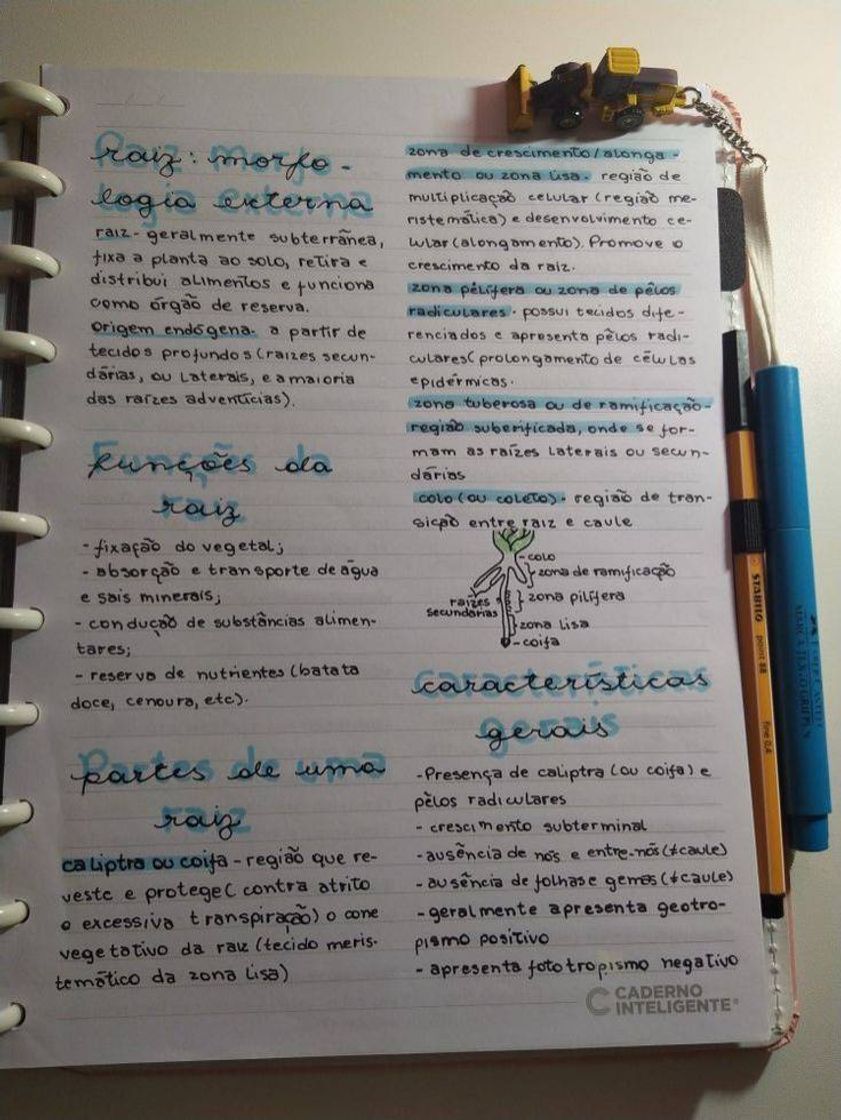 raiz: morfo-
logia externa
raiz- geralmente subterrânea,
fixa a planta ao solo, retira e
distribui alimentos e funciona
como órgão de reserva.
origem endógena- a partir de
tecidos profundos (raízes secun-
dárias, ou laterais, e a maioria
das raízes adventícias).
funções da
raiz
- fixação do vegetal;
- absorção e transporte de água
e sais minerais;
- condução de substâncias alimen-
tares;
- reserva de nutrientes (batata
doce, cenoura, etc).
partes de uma
raiz
caliptra ou coifa - região que re-
veste e protege ( contra atrito
o excessiva transpiração) o cone
vegetativo da raiz (tecido meris-
temático da zona lisa)
zona de crescimento/alonga-
mento ou zona lisa- região de
multiplicação celular (região me-
ristemática) e desenvolvimento ce-
lular (alongamento). Promove o
crescimento da raiz.
zona pêlífera ou zona de pêlos
radiculares- possui tecidos dife-
renciados e apresenta pêlos radi-
culares (prolongamento de células
epidérmicas.
zona tuberosa ou de ramificação-
região suberificada, onde se for-
mam as raízes laterais ou secun-
dárias
colo (ou coleto)- região de tran-
sição entre raiz e caule
- colo
zona de ramificação
raízes
secundárias
zona pilífera
zona lisa
- coifa
características
gerais
- Presença de caliptra (ou coifa) e
pêlos radiculares
- crescimento subterminal
- ausência de nós e entre-nós (≠caule)
- ausência de folhas e gemas (≠caule)
- geralmente apresenta geotro-
pismo positivo
- apresenta fototropismo negativo
CADERNO
INTELIGENTE®
STABILO point 88 fine 0,4